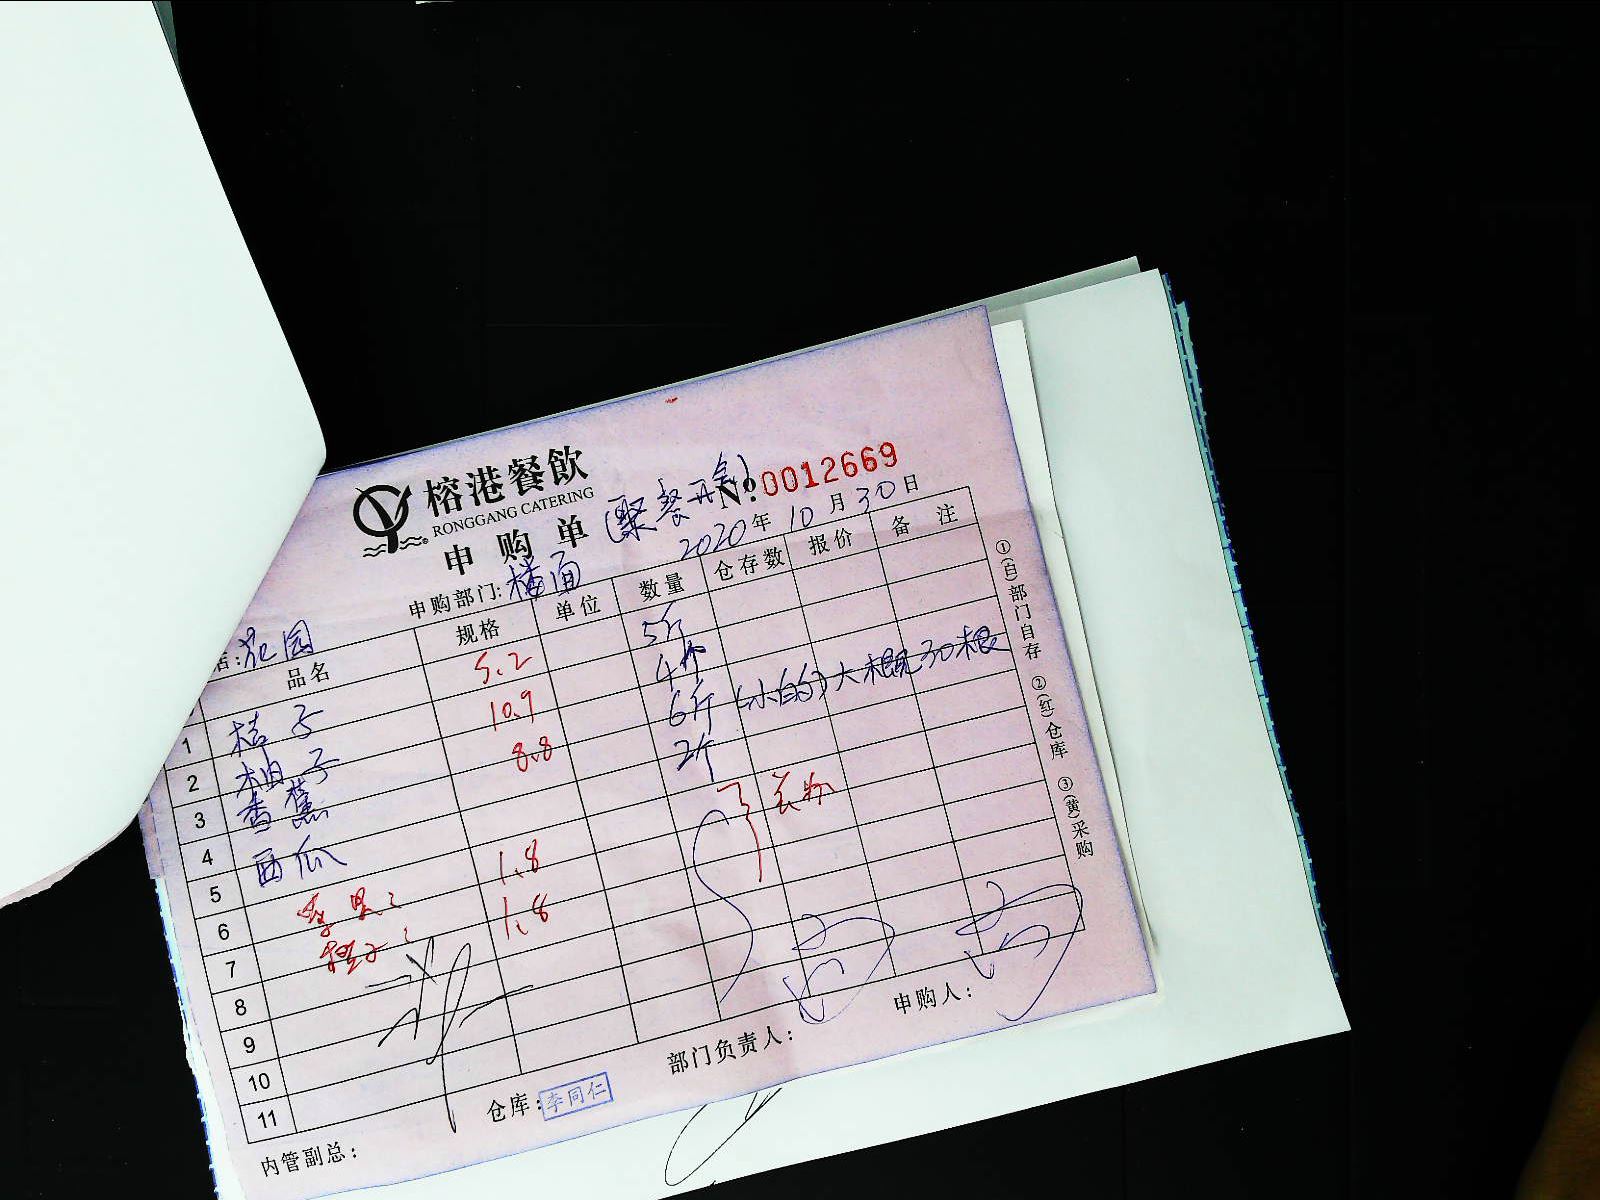 榕港餐飲
RONGGANG CATERING
申购单
(聚餐开会)
№:0012669
2020年10月30日
申购部门:楼面
店:花园
品名 规格 单位 数量 仓存数 报价 备注
1 桔子 5.2 5斤
2 柚子 10.9 4个
3 香蕉 8.8 6斤 (小的)大概30根
4 西瓜 2个
5
6 1.8
7 橙子: 1.8
8
9
10
11
①(白)部门自存 ②(红)仓库 ③(黄)采购
内管副总:
仓库:李同仁
部门负责人:
申购人: